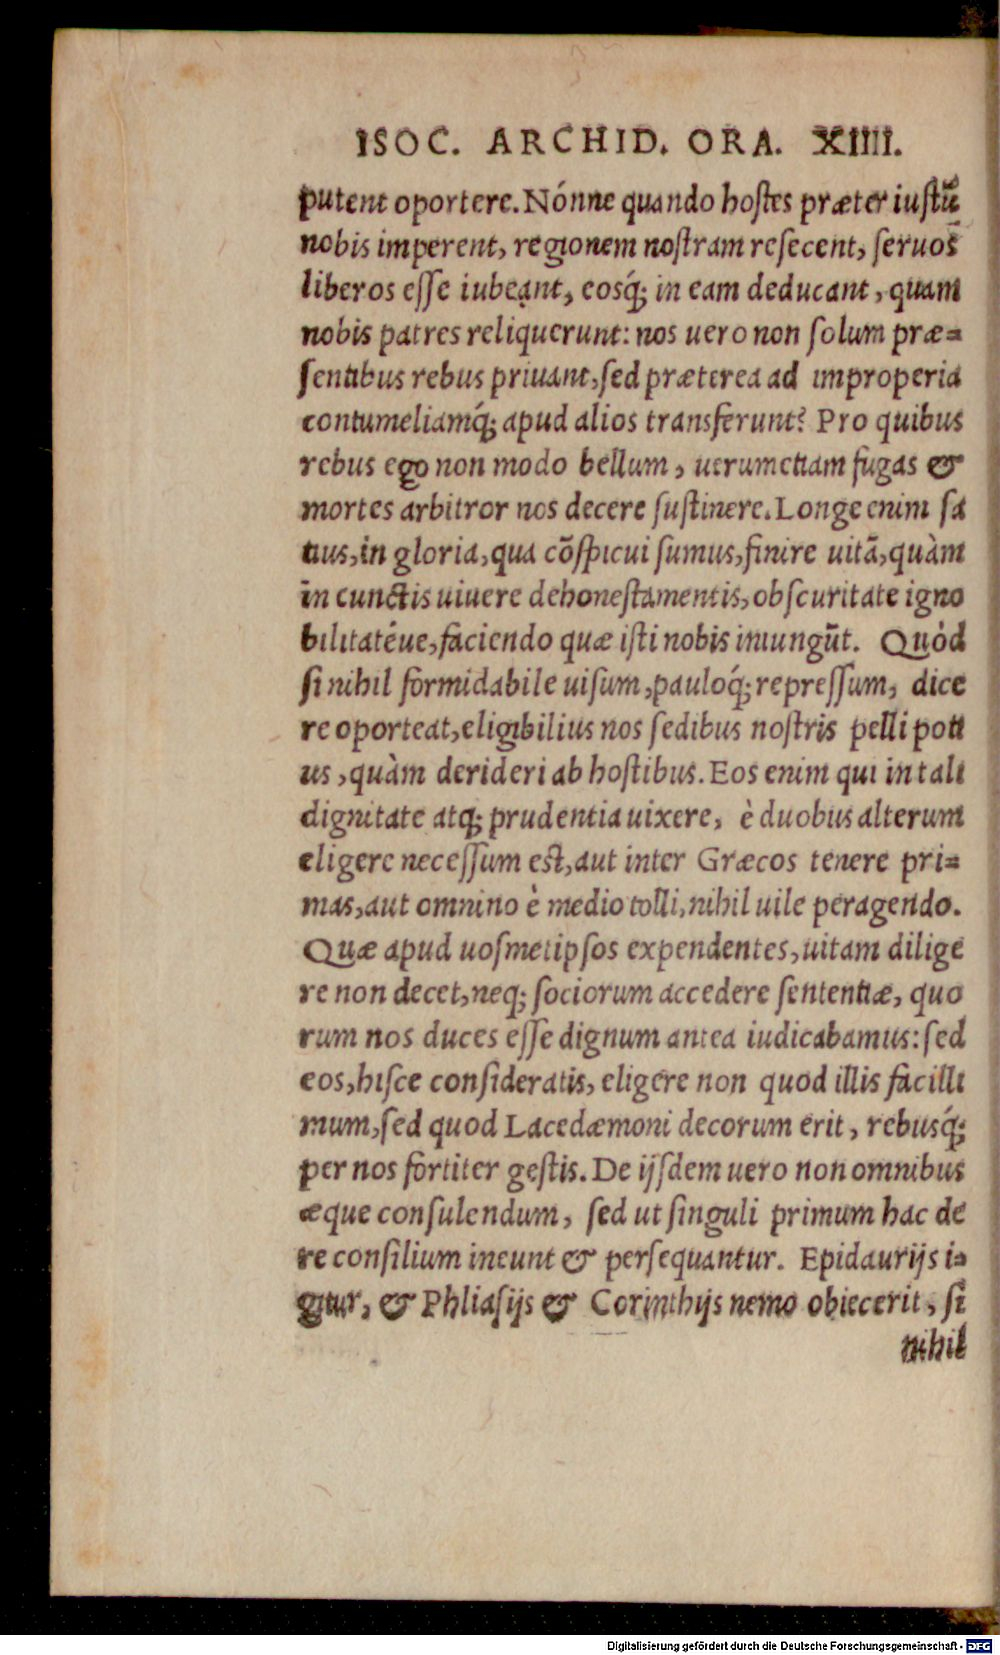 ISOC. ARCHID. ORA. XIIII.
putent oportere. Nónne quando hostes præter iustũ
nobis imperent, regionem nostram resecent, seruos
liberos esse iubeant, eosq́; in eam deducant, quam
nobis patres reliquerunt: nos uero non solum præ=
sentibus rebus priuant, sed præterea ad improperia
contumeliamq́; apud alios transferunt? Pro quibus
rebus ego non modo bellum, uerumetiam fugas &
mortes arbitror nos decere sustinere. Longe enim sa
tius, in gloria, qua cõspicui sumus, finire uitã, quàm
in cunctis uiuere dehonestamentis, obscuritate igno
bilitatéue, faciendo quæ isti nobis iniungũt. Quòd
si nihil formidabile uisum, pauloq́; repressum, dice
re oporteat, eligibilius nos sedibus nostris pelli poti
us, quàm derideri ab hostibus. Eos enim qui in tali
dignitate atq; prudentia uixere, è duobus alterum
eligere necessum est, aut inter Græcos tenere pri=
mas, aut omnino è medio tolli, nihil uile peragendo.
Quæ apud uosmetipsos expendentes, uitam dilige
re non decet, neq; sociorum accedere sententiæ, quo
rum nos duces esse dignum antea iudicabamus: sed
eos, hisce consideratis, eligere non quod illis facilli
mum, sed quod Lacedæmoni decorum erit, rebusq́;
per nos fortiter gestis. De ijsdem uero non omnibus
æque consulendum, sed ut singuli primum hac de
re consilium ineunt & persequantur. Epidaurijs i=
gitur, & Phliasijs & Corinthijs nemo obiecerit, si
nihil
Digitalisierung gefördert durch die Deutsche Forschungsgemeinschaft - DFG